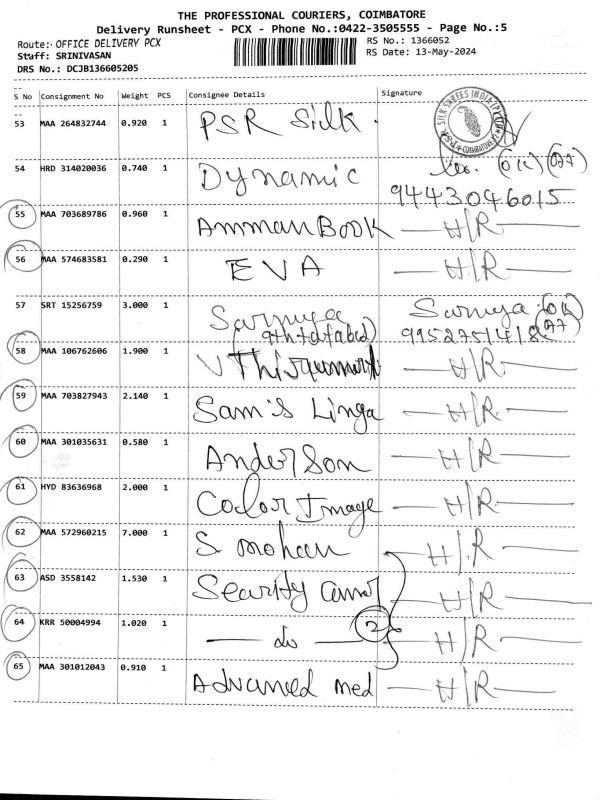 THE PROFESSIONAL COURIERS, COIMBATORE
Delivery Runsheet - PCX - Phone No.:0422-3505555 - Page No.:5
Route: OFFICE DELIVERY PCX
RS No.: 1366052
Staff: SRINIVASAN
RS Date: 13-May-2024
DRS No.: DCJB136605205
S No Consignment No Weight PCS Consignee Details Signature
53 MAA 264832744 0.920 1 PSR Silk
54 HRD 314020036 0.740 1 Dynamic
9443046015
55 MAA 703689786 0.960 1 Amman Book H/R
56 MAA 574683581 0.290 1 EVA H/R
57 SRT 15256759 3.000 1 Sarmya
58 MAA 106762606 1.900 1 H/R
59 MAA 703827943 2.140 1 Sam's Linga H/R
60 MAA 301035631 0.580 1 Anderson H/R
61 HYD 83636968 2.000 1 Color Image H/R
62 MAA 572960215 7.000 1 S. mohan H/R
63 ASD 3558142 1.530 1 H/R
64 KRR 50004994 1.020 1 do 2 H/R
65 MAA 301012043 0.910 1 Advanced med H/R